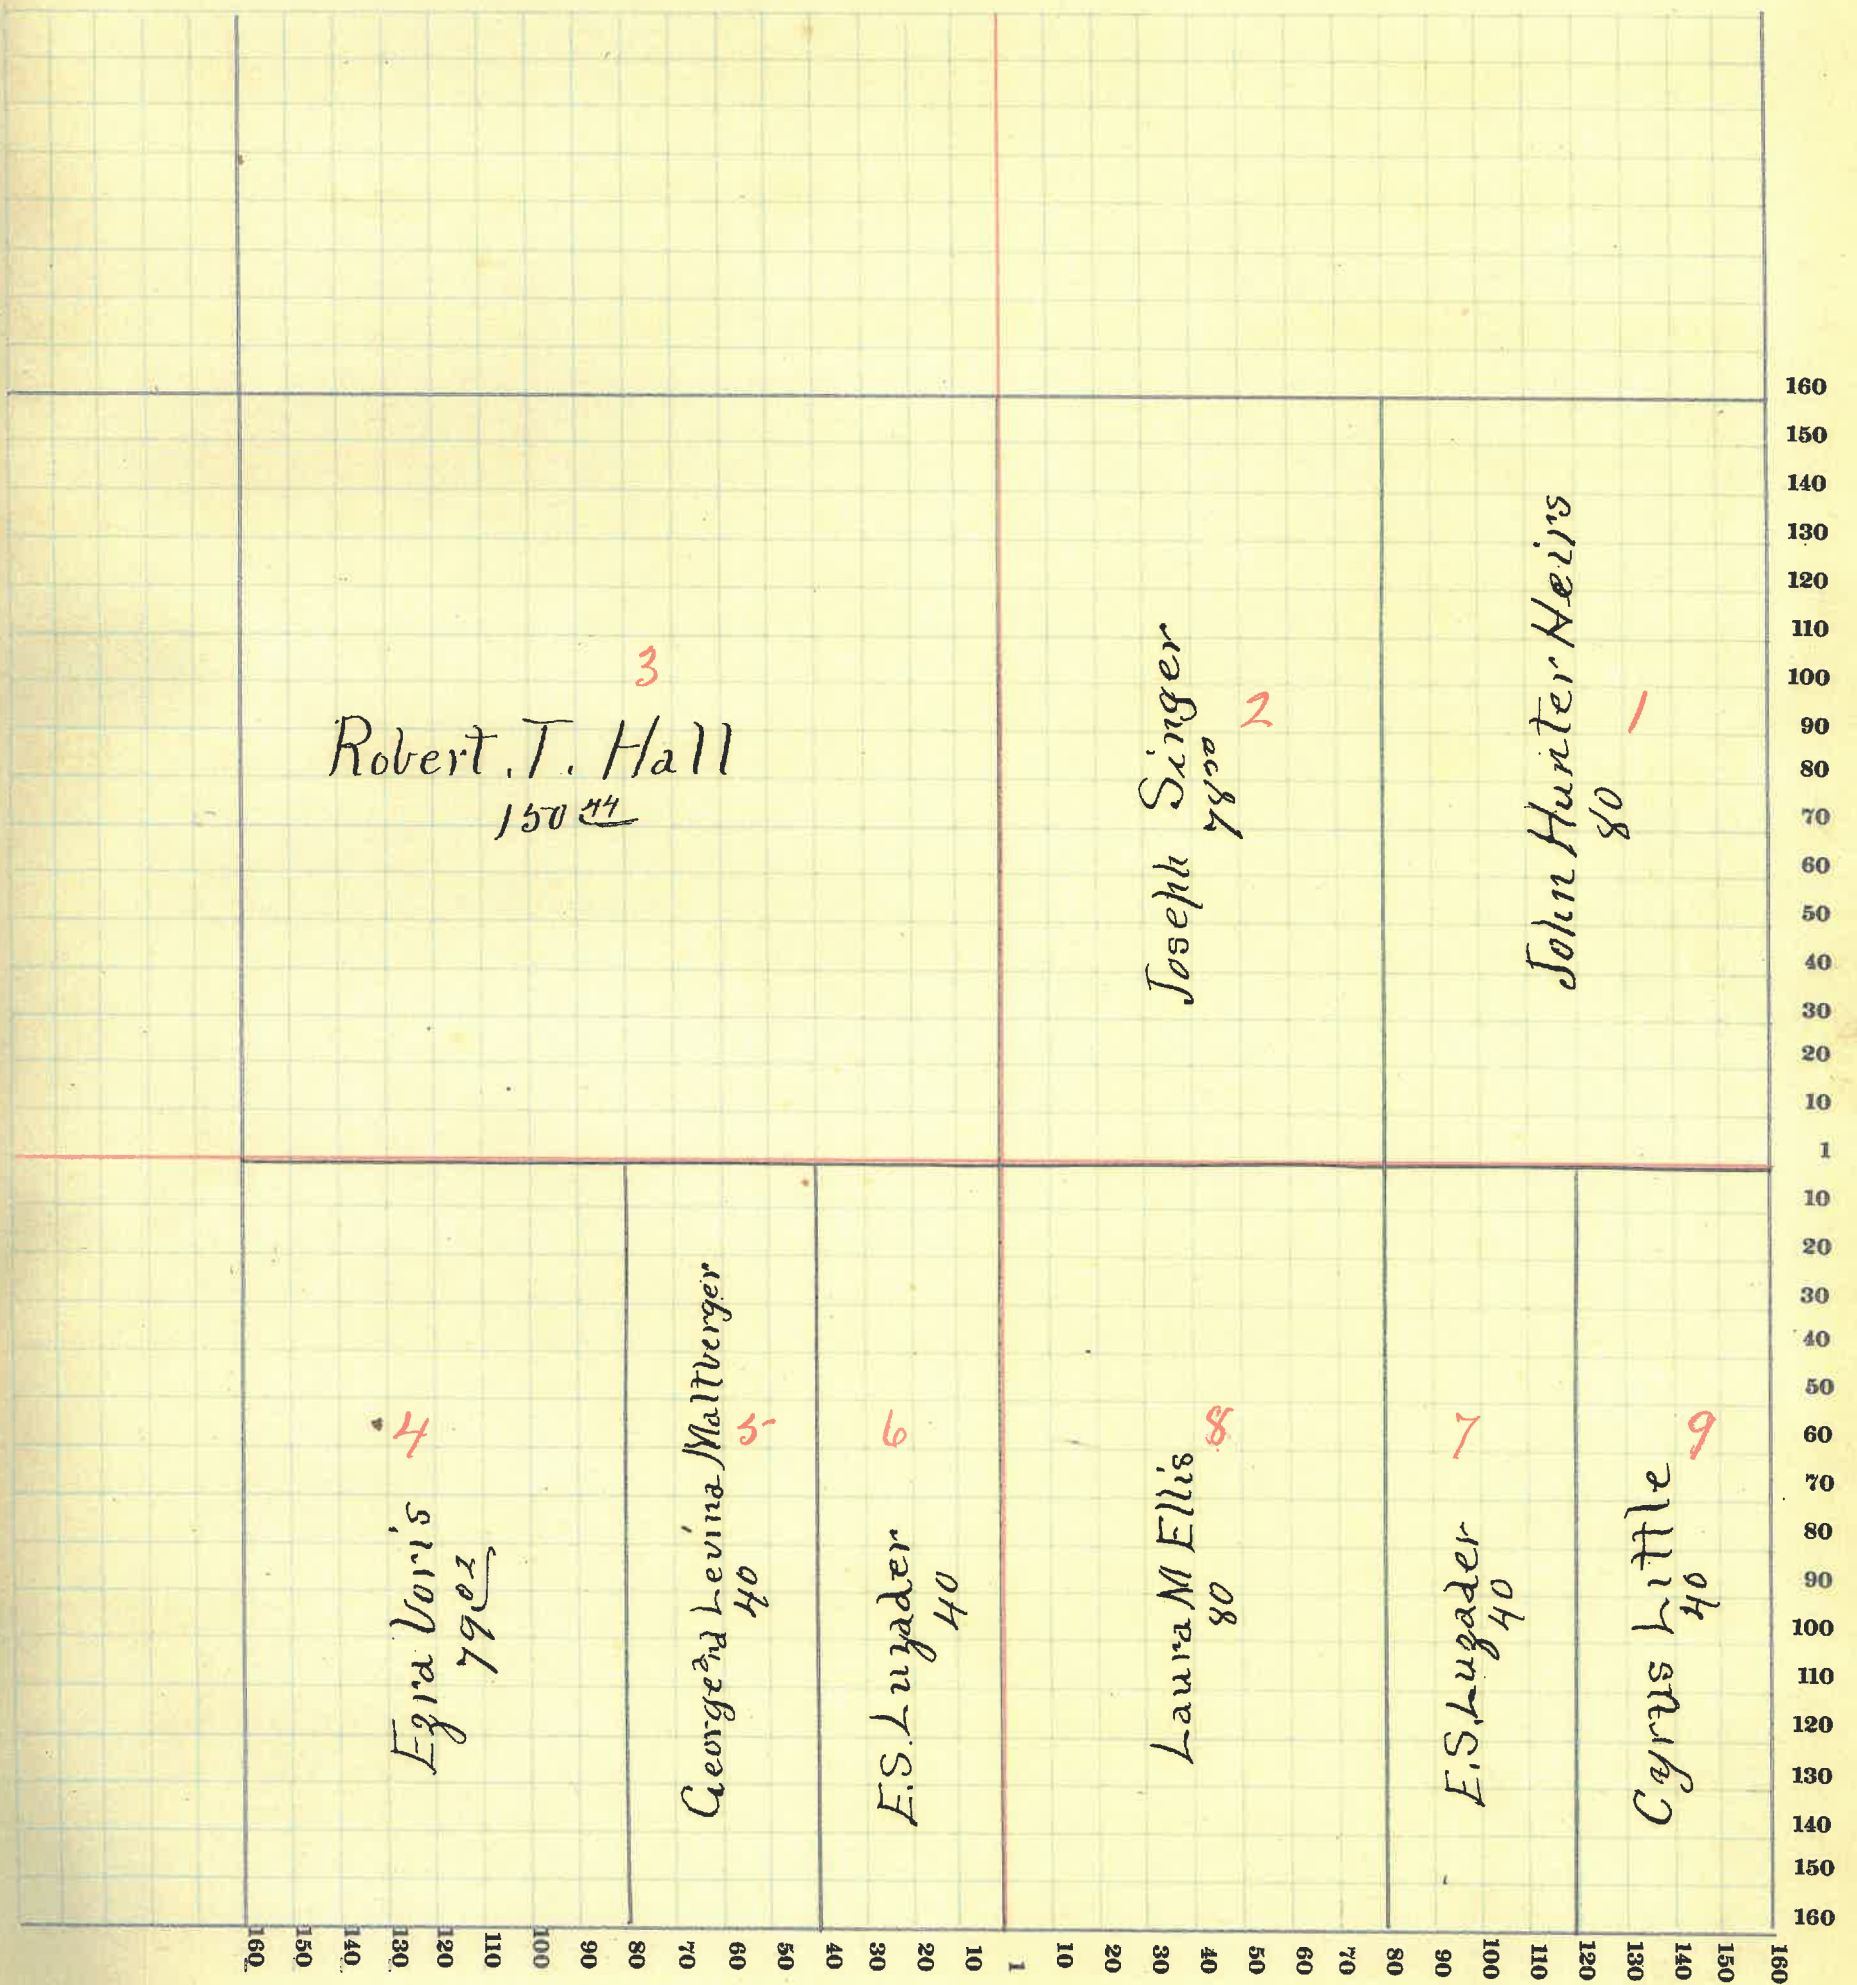 3
Robert. T. Hall
150 44
Joseph Singer
2
John Hunter Heirs
80
1
4
Ezra Voris
79 02
George and Levina Maltverger
40
5
6
E.S. Luzader
40
8
Laura M Ellis
80
7
E.S. Luzader
40
9
Cyrus Little
40
160
150
140
130
120
110
100
90
80
70
60
50
40
30
20
10
1
10
20
30
40
50
60
70
80
90
100
110
120
130
140
150
160
160 150 140 130 120 110 100 90 80 70 60 50 40 30 20 10 1 10 20 30 40 50 60 70 80 90 100 110 120 130 140 150 160